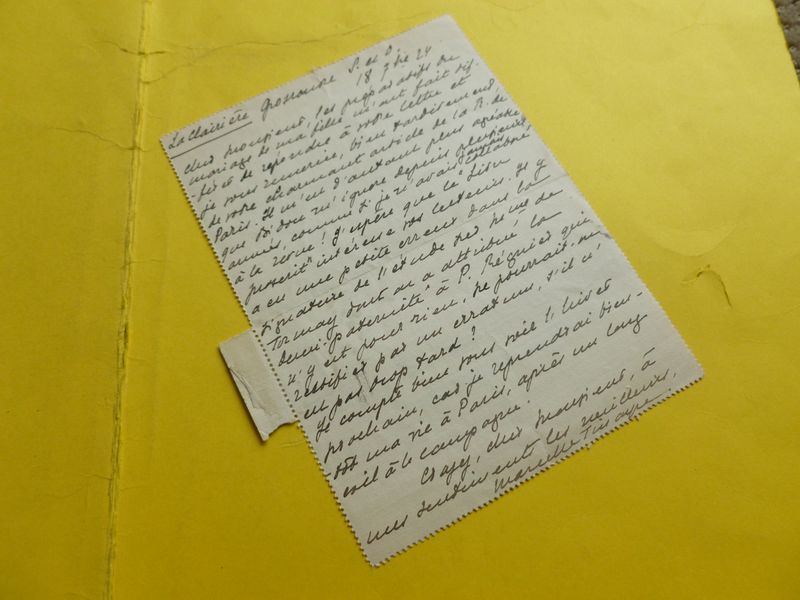 La Clairière Grosrouvre S. et O.
18 9bre 24
Cher Monsieur, les préparatifs du
mariage de ma fille m'ont fait dif-
-férer de répondre à votre lettre et
je vous remercie, bien tardivement,
de votre charmant article de la R. de
Paris. Il m'est d'autant plus agréable
que Bidou m'ignore depuis plusieurs
années, comme si je n'avais jamais collaboré,
à la revue ! J'espère que le "Livre
proscrit" intéresse vos lecteurs. Il y
a eu une petite erreur dans la
signature de l'étude sur Mme de
Tormay dont on a attribué la
demi-paternité à P. Régnier qui
n'y est pour rien. Ne pourrait-on
rectifier par un erratum, s'il n'
est pas trop tard ?
Je compte bien vous voir l'hiver
prochain, car je reprendrai bien-
-tôt ma vie à Paris, après un long
exil à la campagne.
Croyez, cher Monsieur, à
mes sentiments les meilleurs,
Marcelle Tinayre